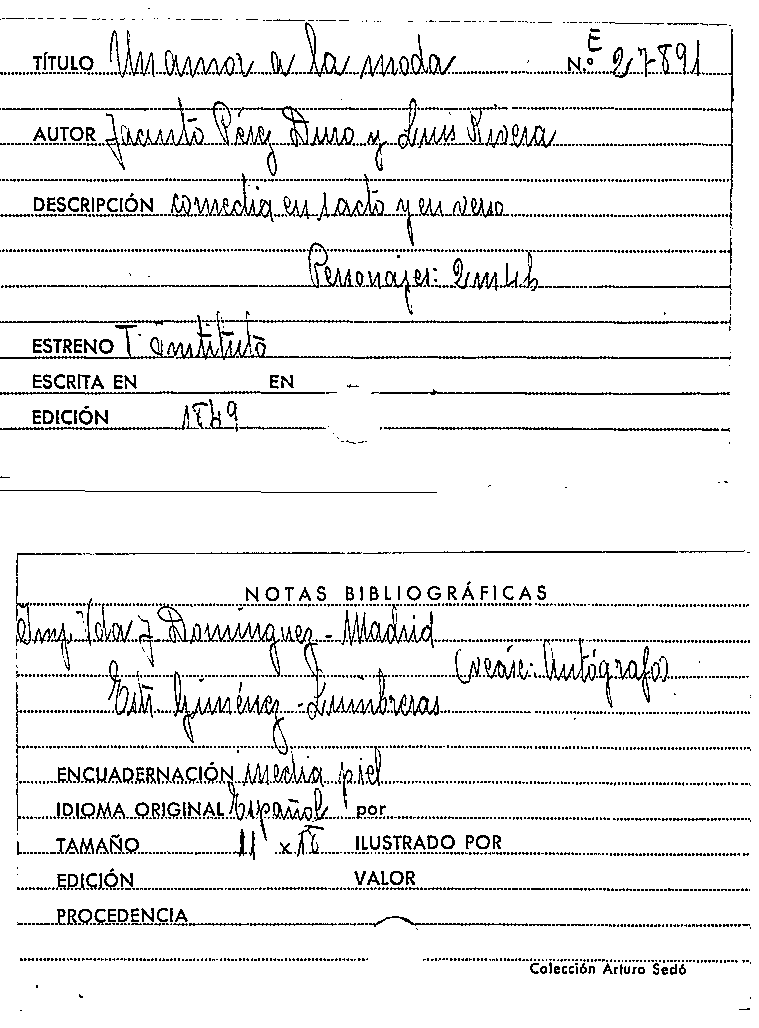 TÍTULO Un amor a la moda N.º E 27891
AUTOR Jacinto Pérez Duro y Luis Rivera
DESCRIPCIÓN comedia en 1 acto y en verso
Personajes: 2 m 4 h
ESTRENO T. Instituto
ESCRITA EN EN
EDICIÓN 1849
NOTAS BIBLIOGRÁFICAS
Imp. Vda J Domínguez - Madrid
(veáse: Autógrafo)
Estr. Giménez - Lumbreras
ENCUADERNACIÓN media piel
IDIOMA ORIGINAL Español por
TAMAÑO 11 x 18 ILUSTRADO POR
EDICIÓN VALOR
PROCEDENCIA
Colección Arturo Sedó